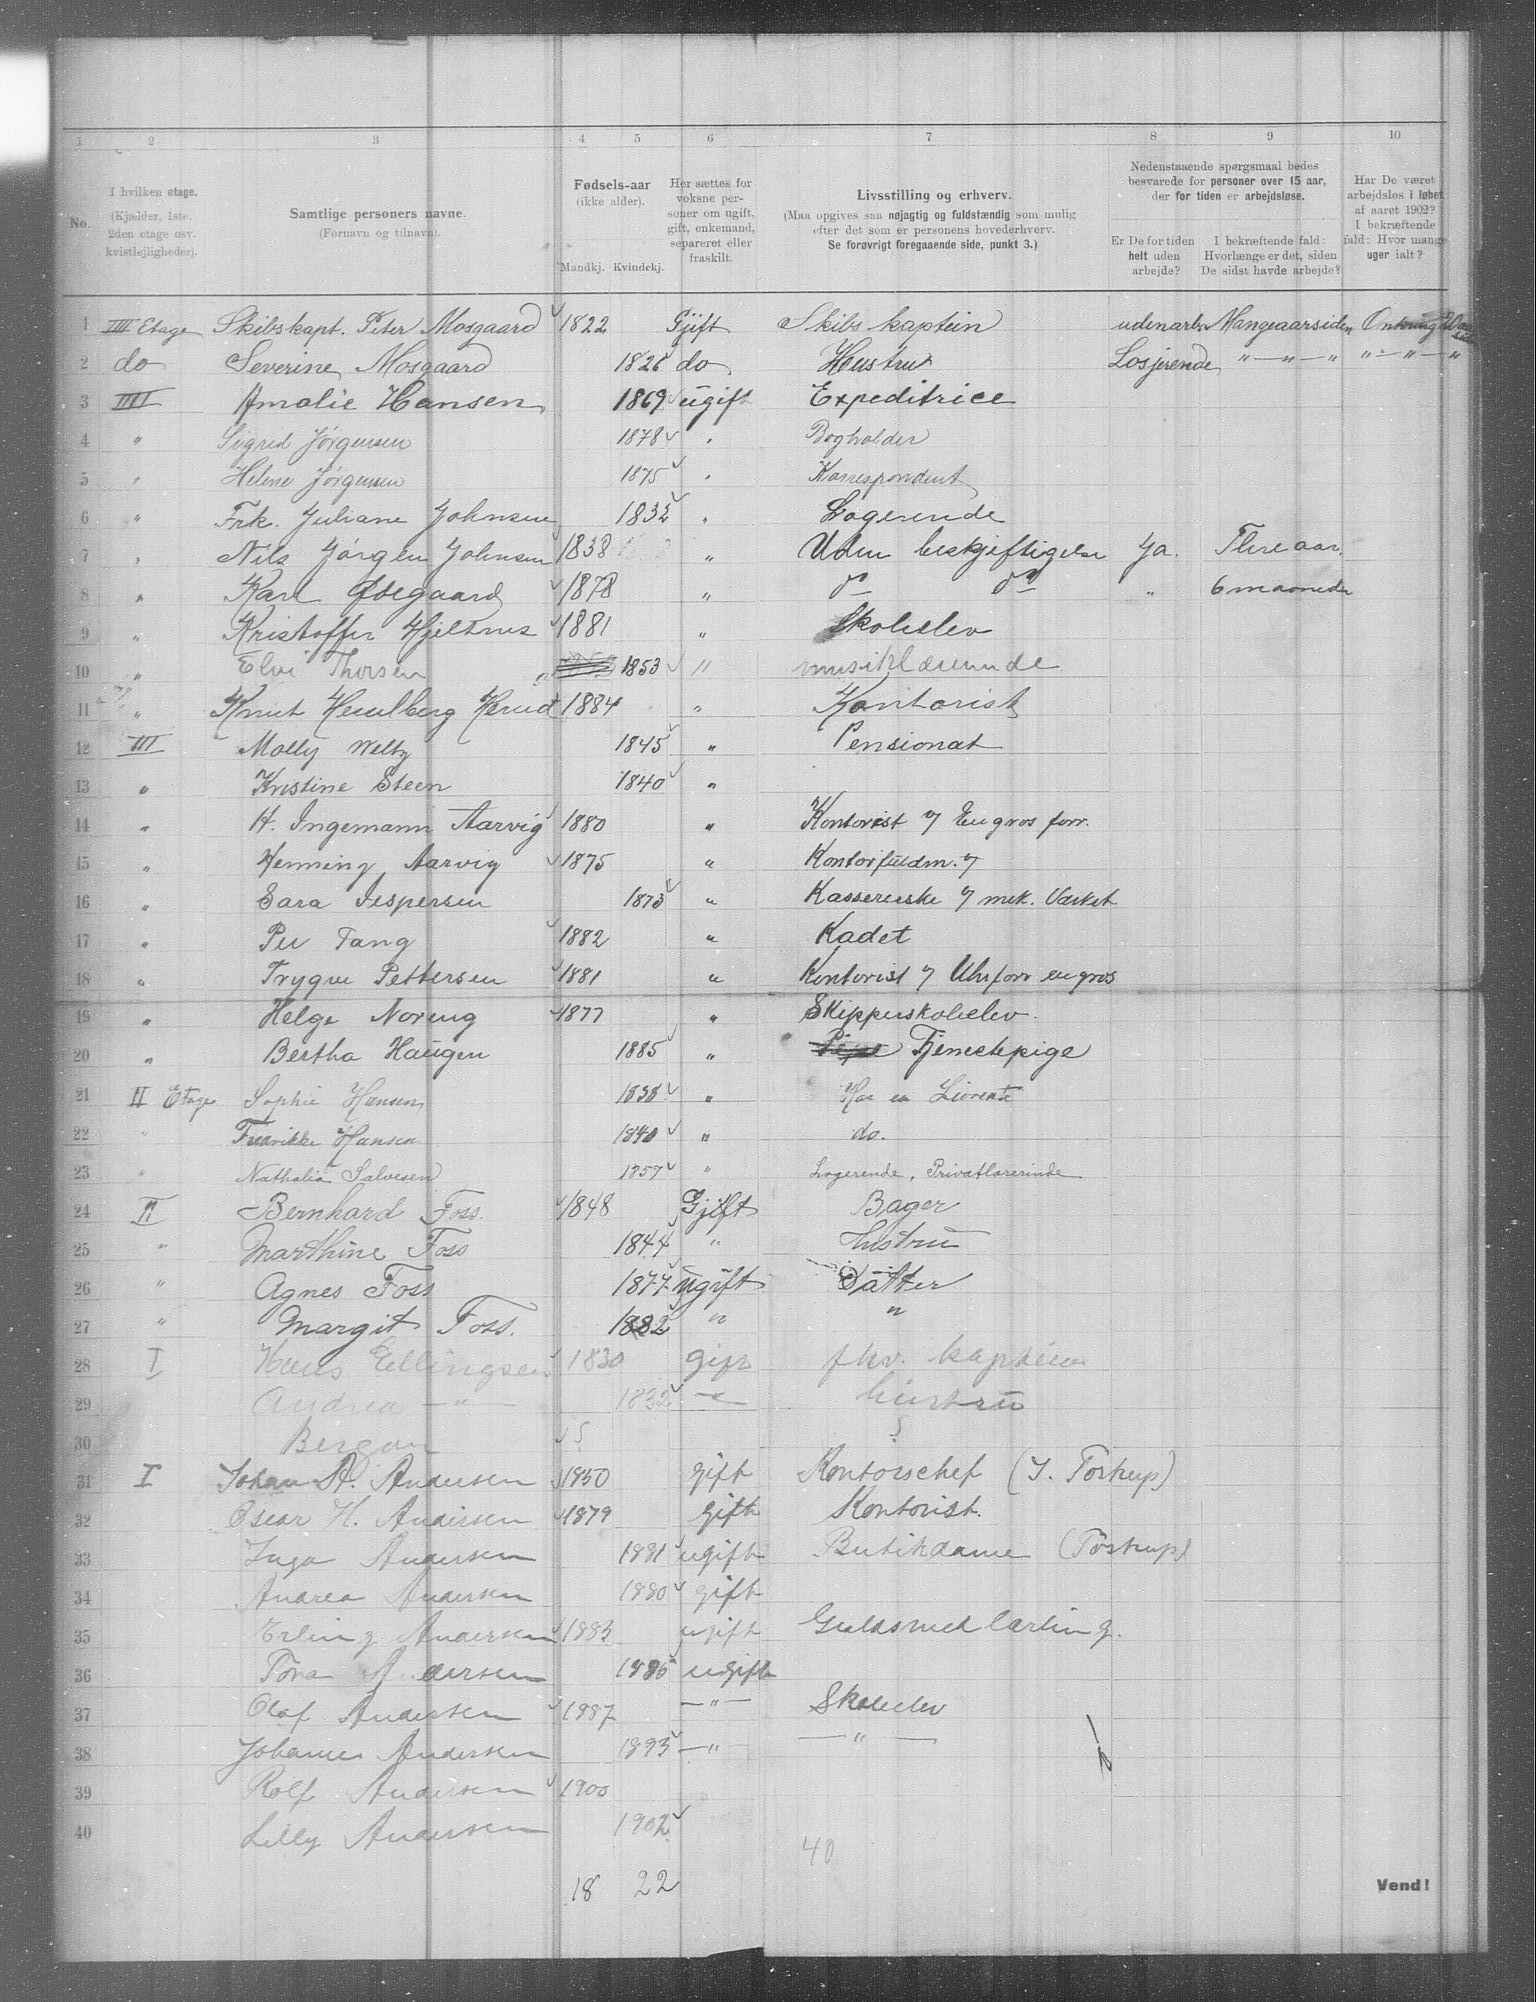 1 2 3 4 5 6 7 8 9 10
No.
I hvilken etage.
(Kjælder, 1ste,
2den etage osv.
kvistlejligheder).
Samtlige personers navne.
(Fornavn og tilnavn).
Fødsels-aar
(ikke alder).
Mandkj. Kvindekj.
Her sættes for
voksne per-
soner om ugift,
gift, enkemand,
separeret eller
fraskilt.
Livsstilling og erhverv.
(Maa opgives saa nøjagtig og fuldstændig som mulig
efter det som er personens hovederhverv.
Se forøvrigt foregaaende side, punkt 3.)
Nedenstaaende spørgsmaal bedes
besvarede for personer over 15 aar,
der for tiden er arbejdsløse.
Er De for tiden
helt uden
arbejde?
I bekræftende fald:
Hvorlænge er det, siden
De sidst havde arbejde?
Har De været
arbejdsløs i løbet
af aaret 1902?
I bekræftende
fald: Hvor mange
uger ialt?
1 IIII Etage Skibskapt. Peter Mosgaard 1822 Gjift Skibs kaptein udenarb. Mangeaarsiden
2 do Severine Mosgaard 1826 do Hustru Losjerende " — " — " " — " — "
3 IIII Amalie Hansen 1869 ugift Expeditrice
4 " Sigred Jørgensen 1878 " Bogholder
5 " Helene Jørgensen 1875 " Korrespondent
6 " Frk. Juliane Johnsen 1832 " Logerende
7 " Nils Jørgen Johnsen 1838 " Uden beskjeftigelse Ja. Flere aar.
8 " Karl Ødegaard 1878 " do do " 6 maaneder
9 " Kristoffer Hjeltnes 1881 " Skoleelev
10 " Elvi Thorsen 1853 " musiklærerinde
11 " Knut Heuelberg Herud 1884 " Kontorist
12 III Molly Welty 1845 " Pensionat
13 " Kristine Steen 1840 "
14 " H. Ingemann Aarvig 1880 " Kontorist i Engros forr.
15 " Henning Aarvig 1875 " Kontorfuldm. i
16 " Sara Jespersen 1873 " Kassererske i mek. Værkst
17 " Per Tang 1882 " Kadet
18 " Trygve Pettersen 1881 " Kontorist i Uhrforr engros
19 " Helge Noreng 1877 " Skipperskoleelev.
20 " Bertha Haugen 1885 " Tjenestepige
21 II Etage Sophie Hansen 1838 " Har en Livrente
22 " Fredrikke Hansen 1840 " do.
23 " Nathalia Salvesen 1857 " Logerende, Privatlærerinde
24 II Bernhard Foss. 1848 Gjift Bager
25 " Marthine Foss 1844 " Hustru
26 " Agnes Foss 1877 Ugift Datter
27 " Margit Foss. 1882 " "
28 I Hans Ellingsen 1830 gift fhv. kaptein
29 Andrea — " — 1832 — " — hustru
30 Bergan
31 I Johan A. Andersen 1850 gift Kontorschef (J. Tostrup)
32 Oscar H. Andersen 1879 gift Kontorist.
33 Inga Andersen 1881 ugift Butikdame (Tostrup)
34 Andrea Andersen 1880 gift
35 Erling Andersen 1883 ugift Guldsmedlærling.
36 Tora Andersen 1885 ugift
37 Olaf Andersen 1887 — " — Skoleelev
38 Johanne Andersen 1893 — " — " —
39 Rolf Andersen 1900
40 Lilly Andersen 1902
40
18 22
Vend!